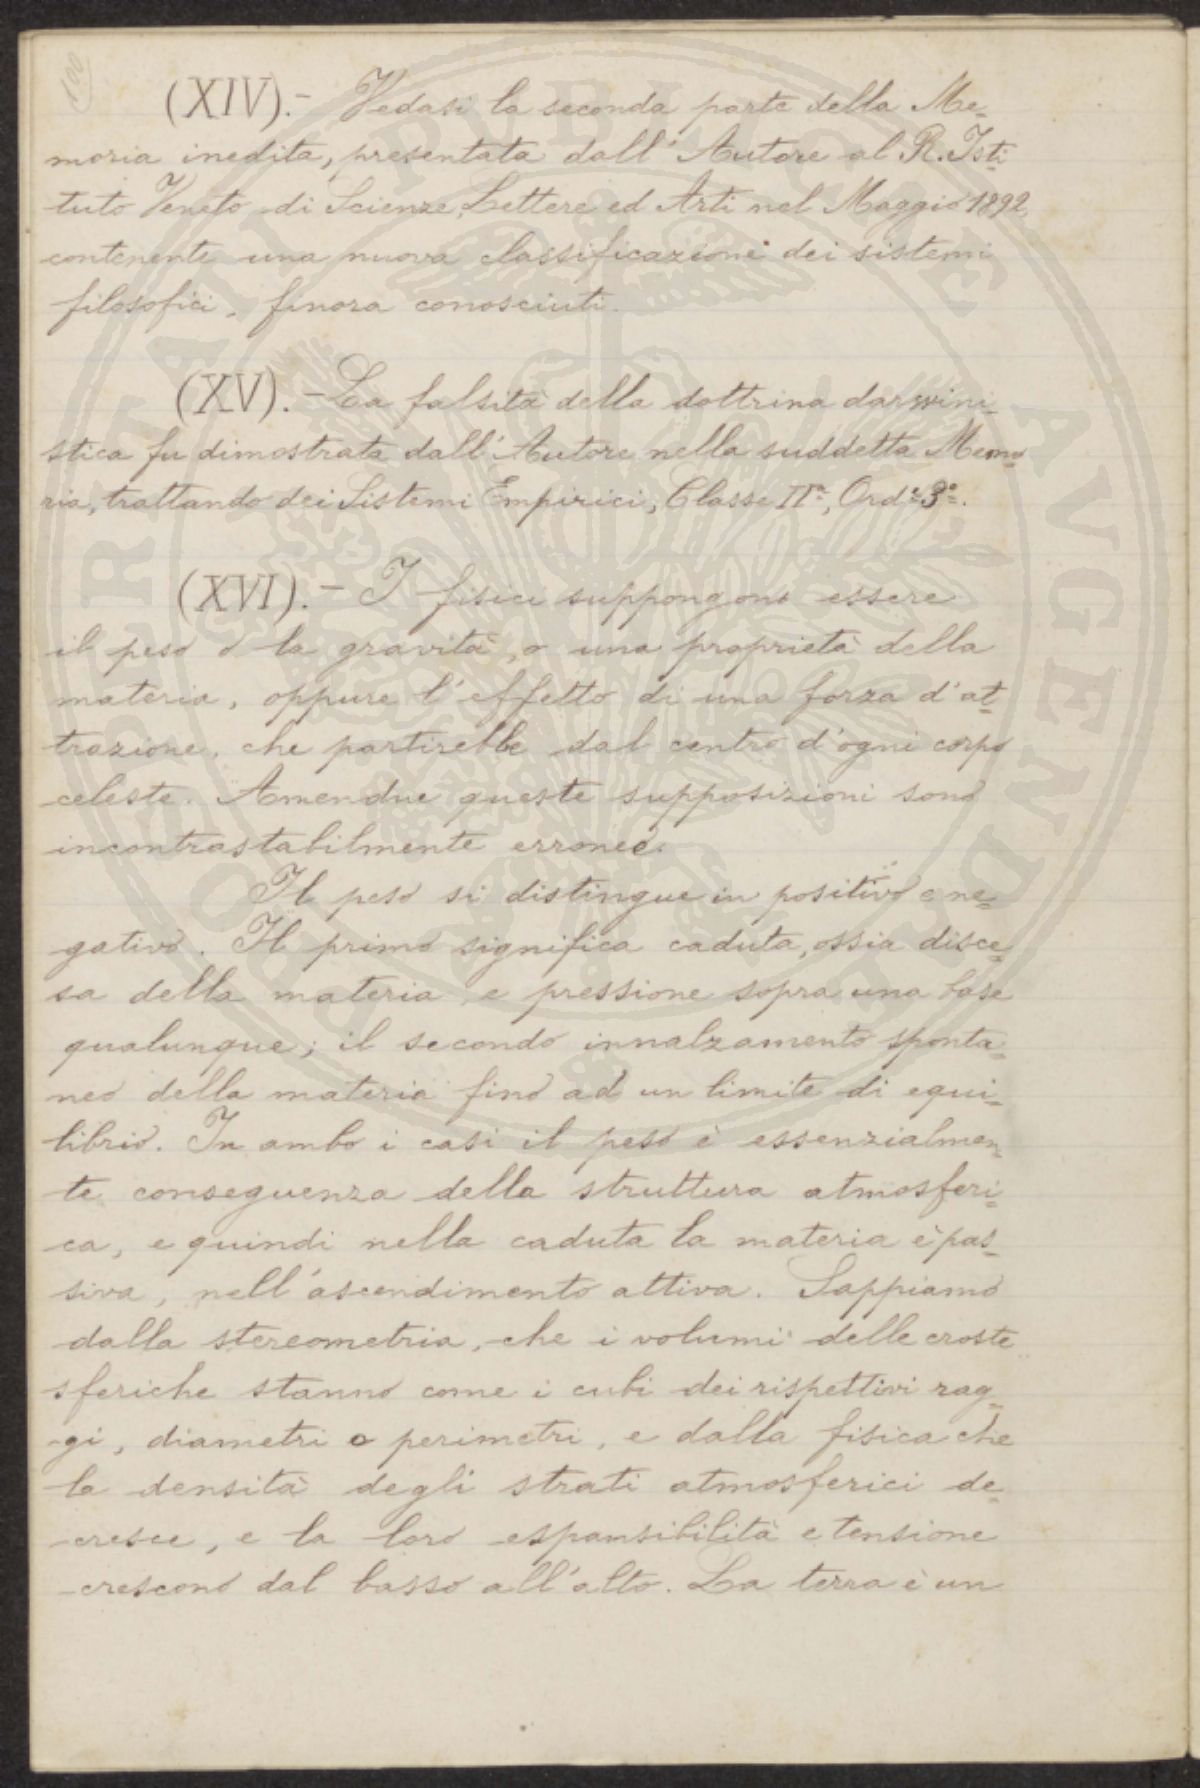 100
(XIV).- Vedasi la seconda parte della Me=
moria inedita, presentata dall'Autore al R. Isti=
tuto Veneto di Scienze, Lettere ed Arti nel Maggio 1892,
contenente una nuova classificazione dei sistemi
filosofici, finora conosciuti.
(XV).- La falsità della dottrina darwini=
stica fu dimostrata dall'Autore nella suddetta Memo=
ria, trattando dei Sistemi Empirici, Classe IIª, Ord: 3º.
(XVI).- I fisici suppongono essere
il peso o la gravità, o una proprietà della
materia, oppure l'effetto di una forza d'at=
trazione, che partirebbe dal centro d'ogni corpo
celeste. Amendue queste supposizioni sono
incontrastabilmente erronee.
Il peso si distingue in positivo e ne=
gativo. Il primo significa caduta, ossia disce=
sa della materia, e pressione sopra una base
qualunque; il secondo innalzamento sponta=
neo della materia fino ad un limite di equi=
librio. In ambo i casi il peso è essenzialmen=
te conseguenza della struttura atmosferi=
ca, e quindi nella caduta la materia è pas=
siva, nell'ascendimento attiva. Sappiamo
dalla stereometria, che i volumi delle croste
sferiche stanno come i cubi dei rispettivi rag=
gi, diametri o perimetri, e dalla fisica che
la densità degli strati atmosferici de=
cresce, e la loro espansibilità e tensione
crescono dal basso all'alto. La terra è un
PROSPERITATI PUBLICAE AVGENDAE